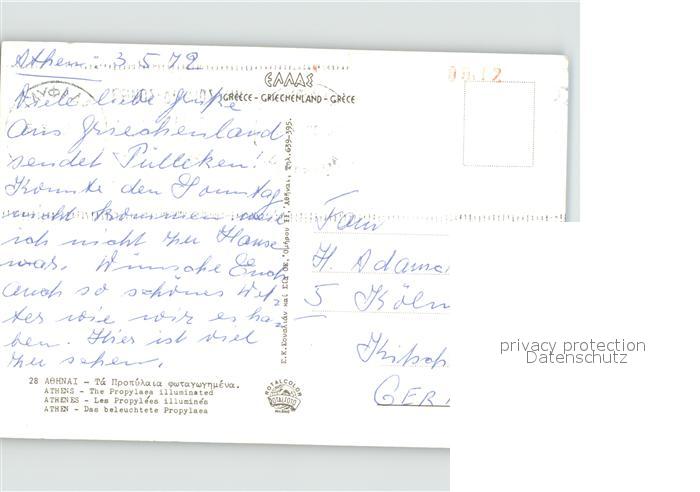 Athen, 3.5.72
Viele liebe Grüße
aus Griechenland
sendet
Konnte den Sonntag
nicht kommen weil
ich nicht zu Hause
war. Wünsche Euch
auch so schönes Wet-
ter wie wir es ha-
ben. Hier ist viel
zu sehen.
ΕΛΛΑΣ
GREECE - GRIECHENLAND - GRÈCE
H. Adams
5 Köln
GER
28 ΑΘΗΝΑΙ – Τὰ Προπύλαια φωταγωγημένα.
ATHENS – The Propylaea illuminated
ATHENES – Les Propylées illuminés
ATHEN – Das beleuchtete Propylaea
ROTALCOLOR
ROTALFOTO
MILANO
privacy protection
Datenschutz